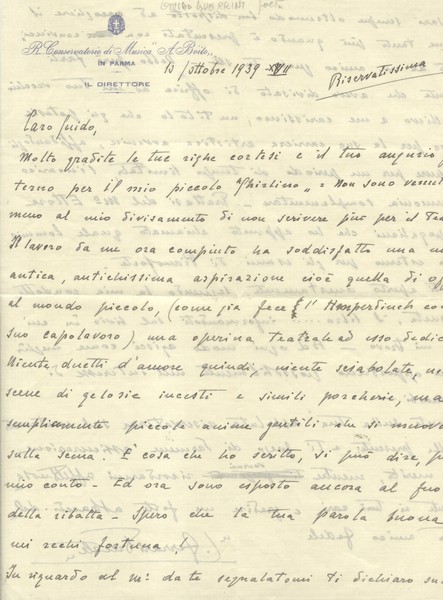 R. Conservatorio di Musica "A. Boito"
IN PARMA
IL DIRETTORE
10/ottobre 1939 XVII
Riservatissima
Caro Guido,
Molto gradite le tue righe cortesi e il tuo augurio f
terno per il mio piccolo "Ghirlino" = Non sono venut
meno al mio divisamento di non scrivere più per il Tea
Il lavoro da me ora compiuto ha soddisfatto una m
antica, antichissima aspirazione cioè quella di off
al mondo piccolo, (come già fece l'Humperdinck co
suo capolavoro) una operina teatrale ad esso dedic
Niente duetti d'amore quindi, niente sciabolate, ne
scene di gelosie incesti e simili porcherie, ma
semplicemente piccole anime gentili che si muovo
sulla scena. È cosa che ho scritto, si può dire, p
mio conto - Ed ora sono esposto ancora al fuo
della ribalta - Spero che la tua parola buona
mi rechi fortuna!
In riguardo al m.° da te segnalatomi ti dichiaro su